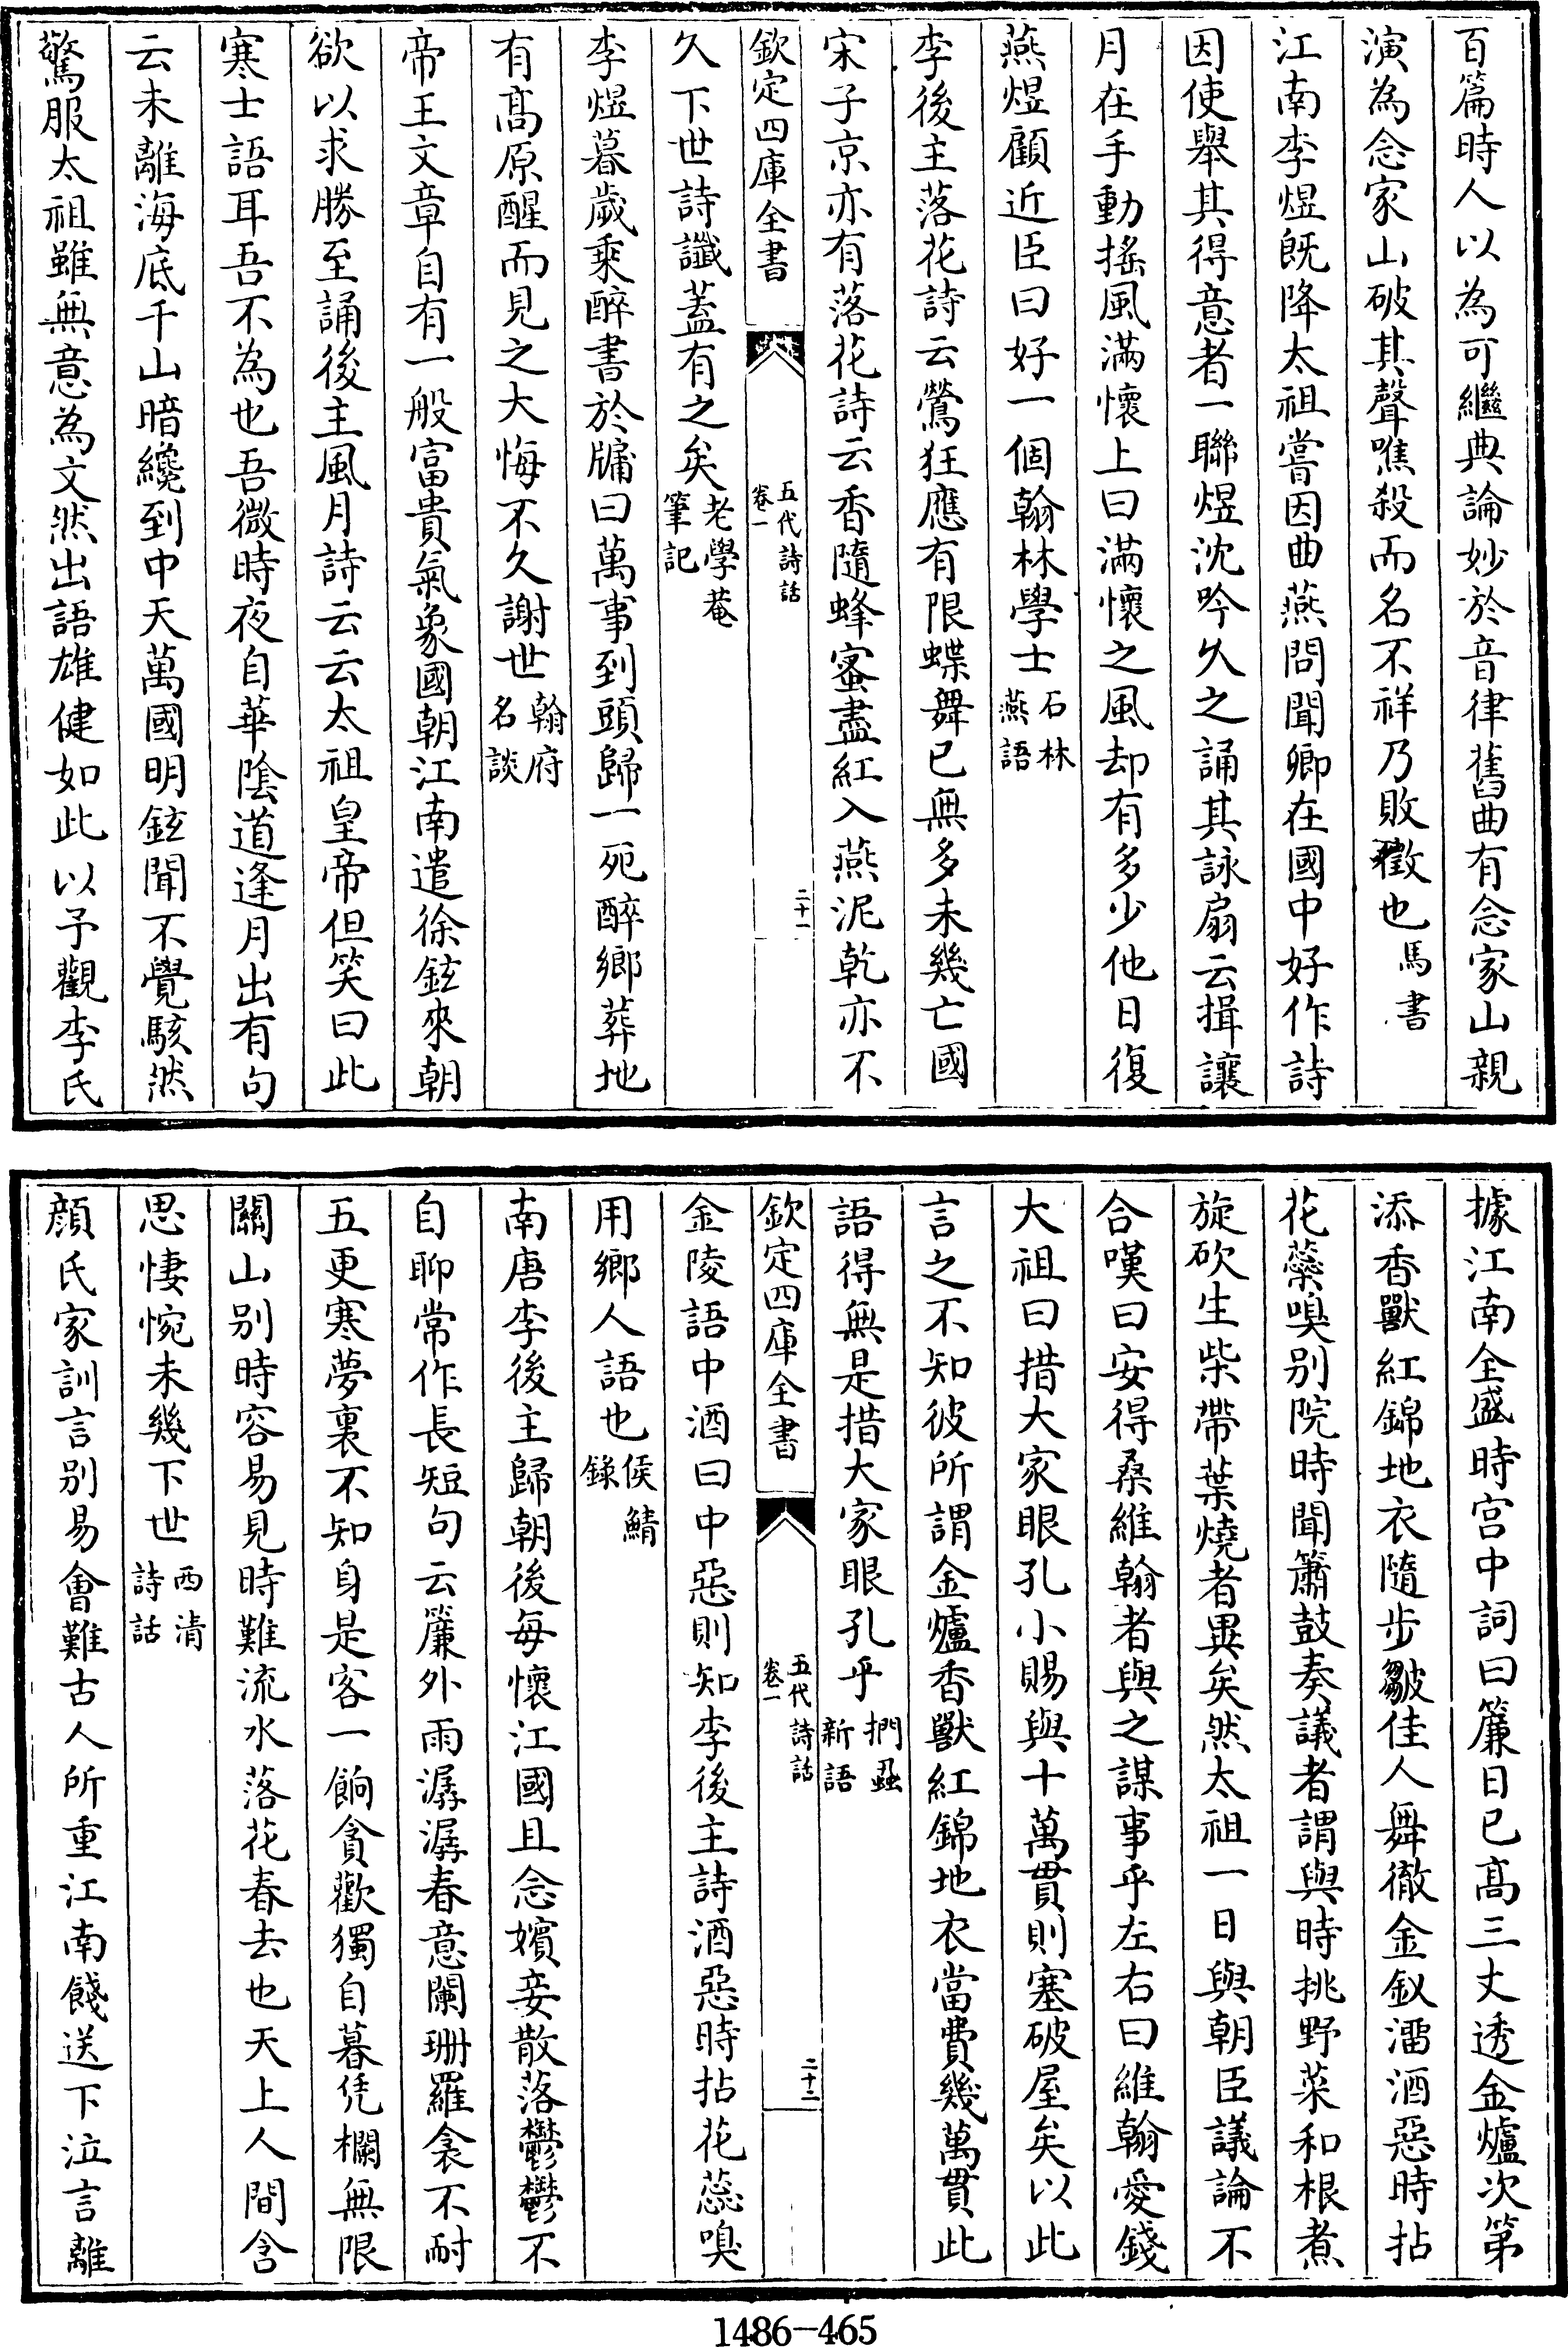 百篇時人以為可繼典論妙於音律舊曲有念家山親
演為念家山破其聲噍殺而名不祥乃敗徵也馬書
江南李煜既降太祖嘗因曲燕問聞卿在國中好作詩
因使舉其得意者一聯煜沈吟久之誦其詠扇云揖讓
月在手動搖風滿懷上曰滿懷之風却有多少他日復
燕煜顧近臣曰好一個翰林學士石林燕語
李後主落花詩云鶯狂應有限蝶舞已無多未幾亡國
宋子京亦有落花詩云香隨蜂蜜盡紅入燕泥乾亦不
欽定四庫全書 五代詩話卷一 二十一
久下世詩讖蓋有之矣老學菴筆記
李煜暮歲乘醉書於牖曰萬事到頭歸一死醉鄉葬地
有髙原醒而見之大悔不久謝世翰府名談
帝王文章自有一般富貴氣象國朝江南遣徐鉉來朝
欲以求勝至誦後主風月詩云云太祖皇帝但笑曰此
寒士語耳吾不為也吾微時夜自華陰道逢月出有句
云未離海底千山暗纔到中天萬國明鉉聞不覺駭然
驚服太祖雖無意為文然出語雄健如此以予觀李氏
據江南全盛時宫中詞曰簾日已髙三丈透金爐次第
添香獸紅錦地衣隨步皺佳人舞徹金釵溜酒惡時拈
花蘂嗅别院時聞簫鼓奏議者謂與時挑野菜和根煮
旋砍生柴帶葉燒者異矣然太祖一日與朝臣議論不
合嘆曰安得桑維翰者與之謀事乎左右曰維翰愛錢
大祖曰措大家眼孔小賜與十萬貫則塞破屋矣以此
言之不知彼所謂金爐香獸紅錦地衣當費幾萬貫此
語得無是措大家眼孔乎捫蝨新語
欽定四庫全書 五代詩話卷一 二十二
金陵語中酒曰中惡則知李後主詩酒惡時拈花蕊嗅
用鄉人語也侯鯖錄
南唐李後主歸朝後每懷江國且念嬪妾散落鬱鬱不
自聊常作長短句云簾外雨潺潺春意闌珊羅衾不耐
五更寒夢裏不知身是客一餉貪歡獨自暮凭欄無限
關山别時容易見時難流水落花春去也天上人間含
思悽惋未幾下世西清詩話
顔氏家訓言别易會難古人所重江南餞送下泣言離
1486-465